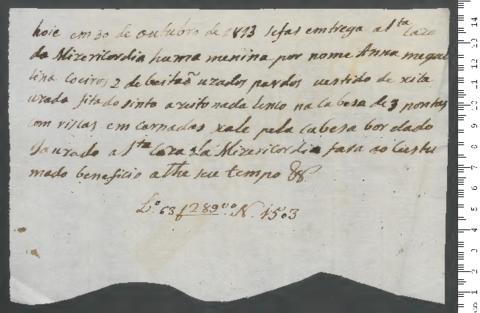 hoie em 30 de outubro de 1813 se fas emtrega a S.ta Caza
da Mizericordia huma menina por nome Anna magal
lina Coeiros 2 de baitaõ uzados pardos vestido de xita
uzado fitado sinto lenso na cabesa de 3 pontas
com riscas em carnadas xale pela cabesa bordado
a S.ta Caza da Mizericordia fara ao Custu
mado beneficio athe seu tempo &&.
L.º 68 f 289 v.º N. 1503